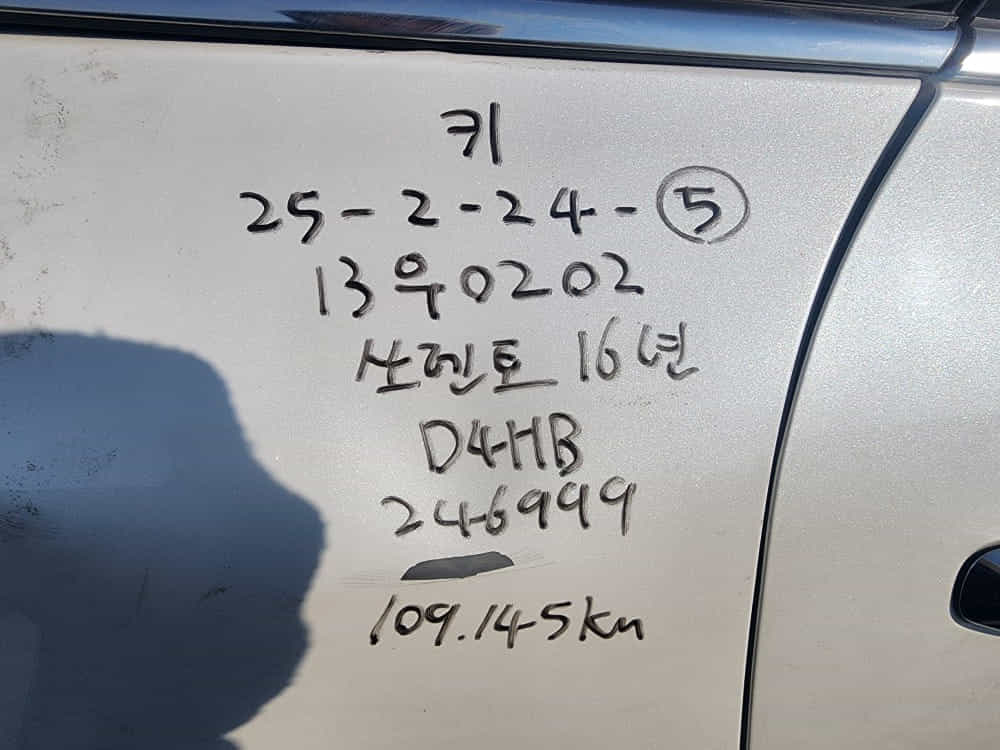 키
25-2-24-⑤
13우0202
쏘렌토 16년
D4HB
246999
109.145km